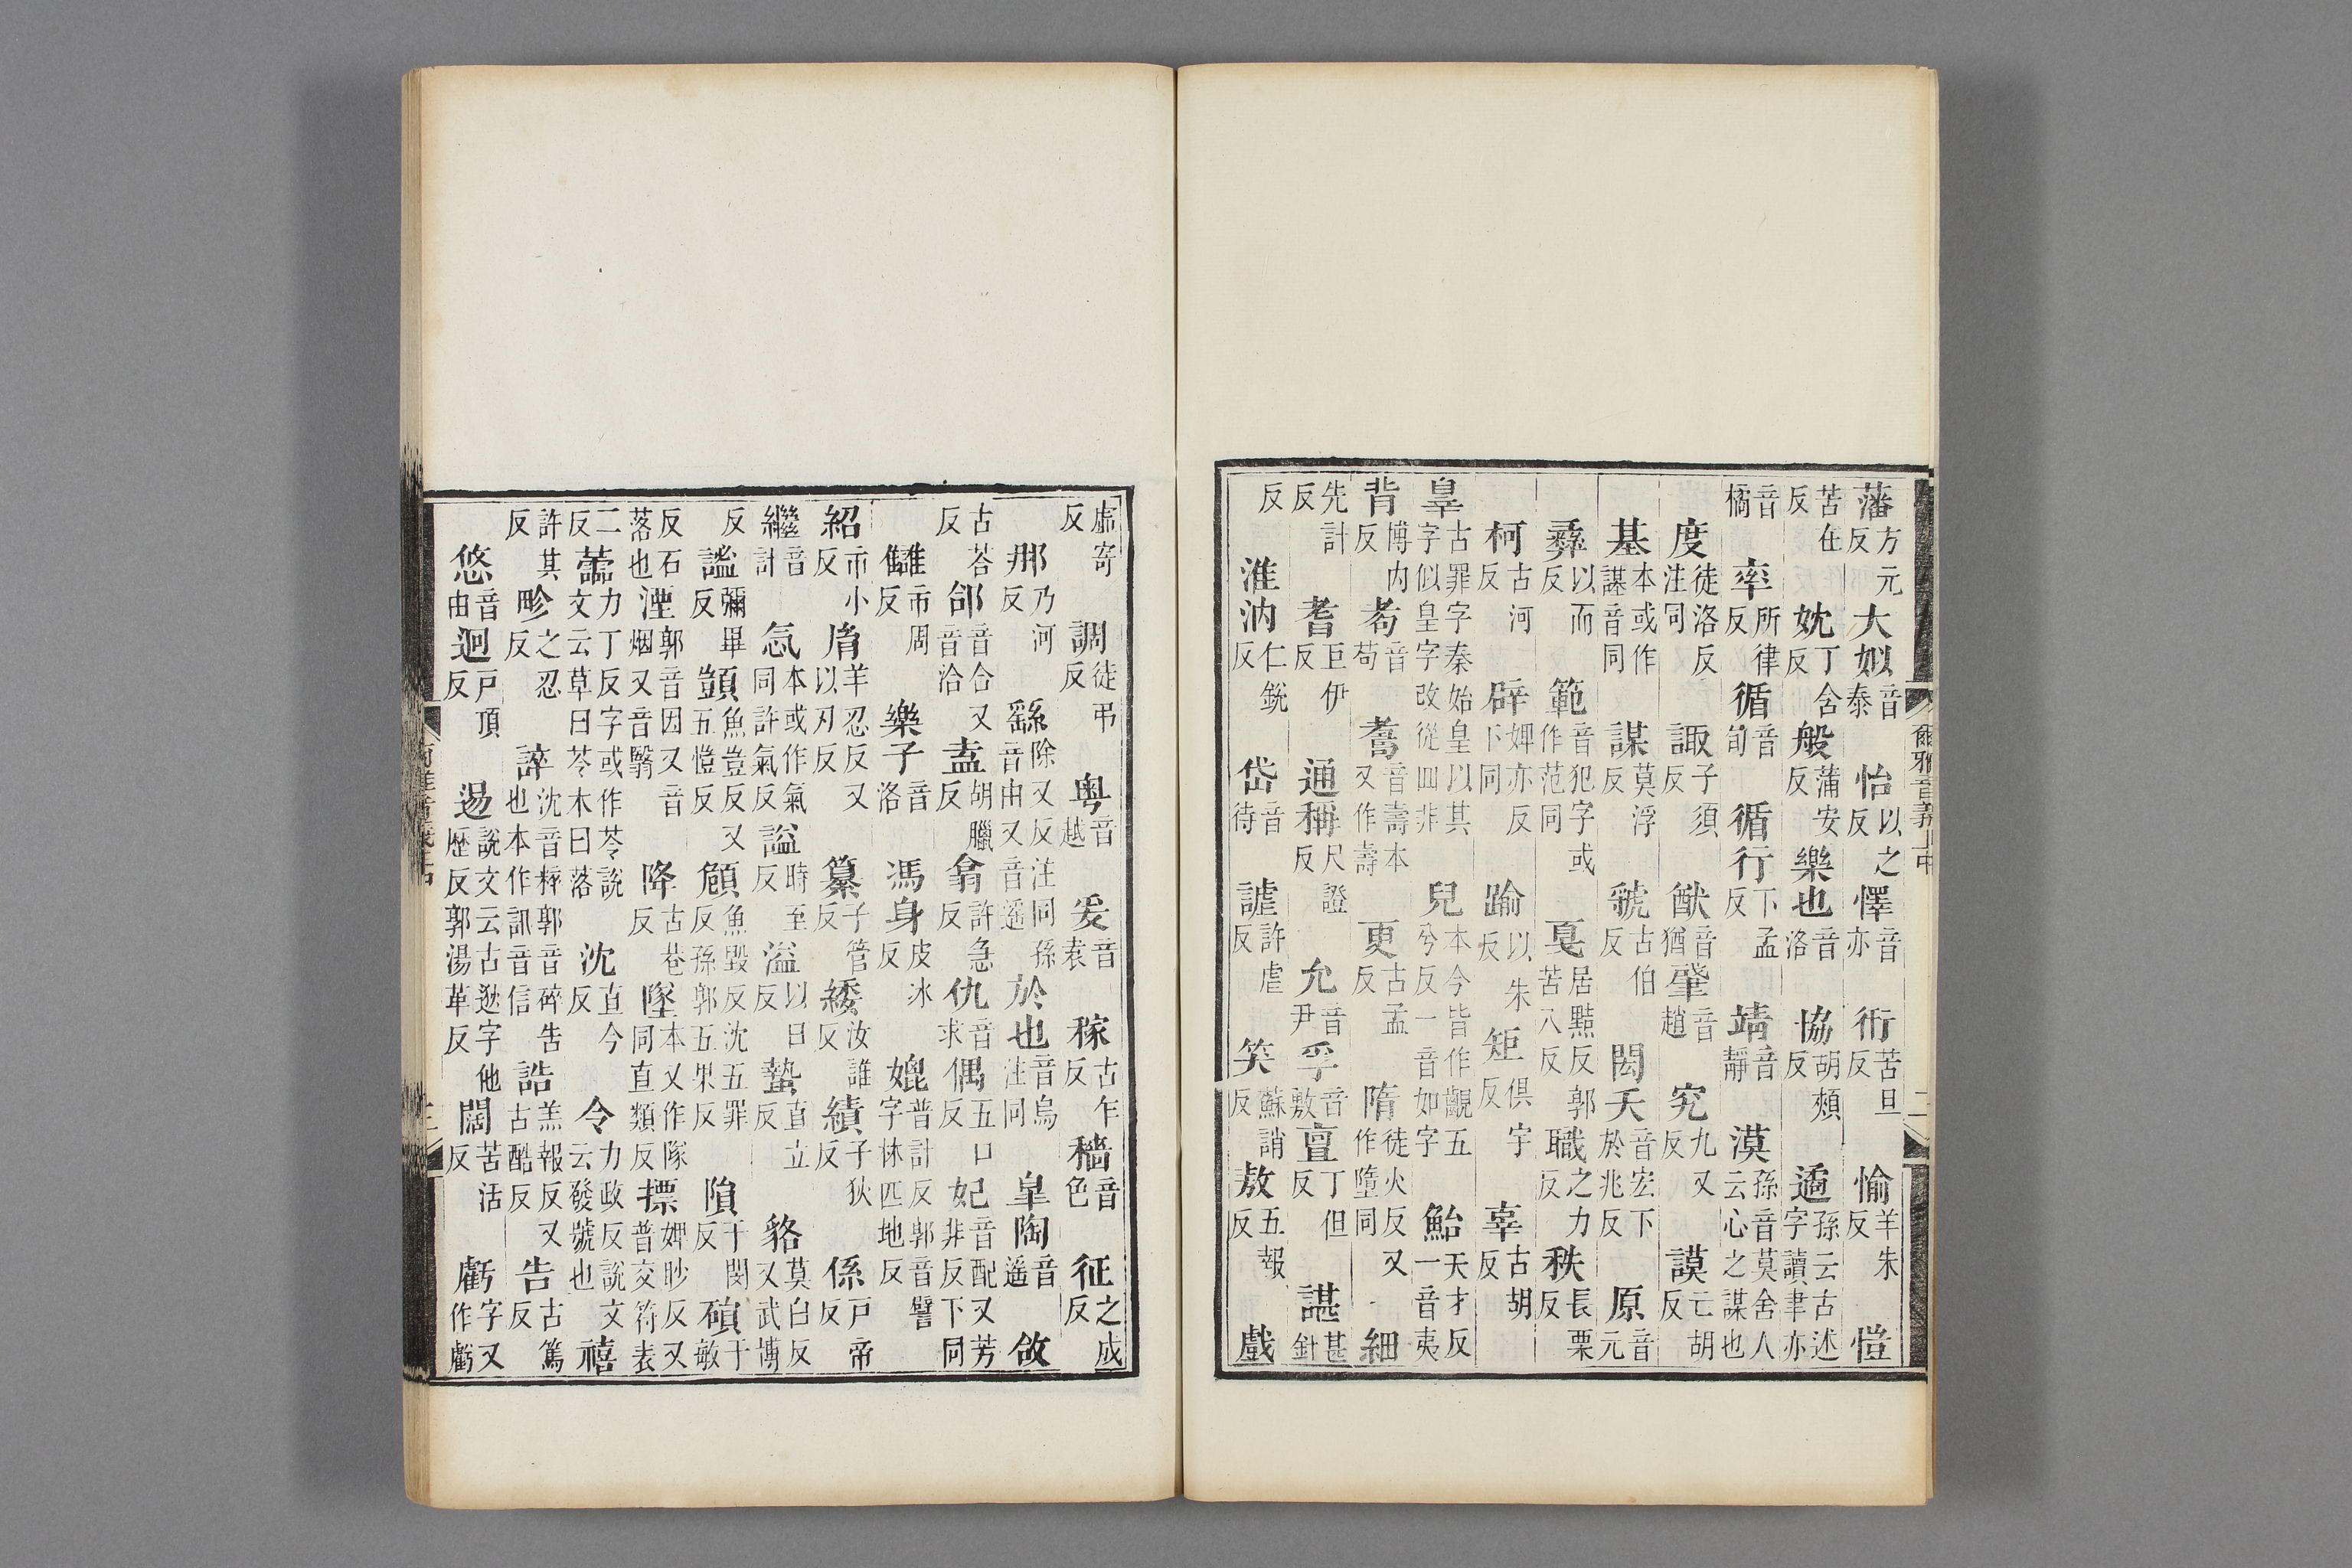 爾雅音義上中 二
藩方元反大姒音泰怡以之反懌音亦衎苦旦反愉羊朱反愷
苦在反妉丁含反般蒲安反樂也音洛協胡頰反遹孫云古述字讀聿亦
音橘率所律反循音旬循行下孟反靖音靜漠孫音莫舍人云心之謀也
度徒洛反注同諏子須反猷音猶肇音趙究九又反謨亡胡反
基本或作諆音同謀莫浮反虢古伯反閎夭音宏下於兆反原音元
彝以而反範音犯字或作范同戛居黠反郭苦八反職之力反秩長栗反
柯古河反辟婢亦反下同踰以朱反矩俱宇反辜古胡反
辠古罪字秦始皇以其字似皇字改從罒非兒本今皆作齯五兮反一音如字鮐天才反一音夷
背博内反耇音苟耈音壽本又作壽更古孟反隋徒火反又作墮同細
先計反耆巨伊反通稱尺證反允音尹孚音敷亶丁但反諶甚針
反淮汭仁銳反岱音待謔許虐反笑蘇誚反敖五報反戲
虛寄反調徒弔反粤音越爰音袁稼古乍反穡音色征之成反
那乃河反繇除又反注同孫音由又音遙於也音烏注同皐陶音遙敆
古荅反郃音合又音洽盍胡臘反翕許急反仇音求偶五口反妃音配又芳非反下同
讎市周反樂子音洛馮身皮冰反媲普計反郭音譬字林匹地反
紹市小反胤羊忍反又以刃反纂子管反緌汝誰反績子狄反係戶帝反
繼音計忥本或作氣同許氣反謚時至反溢以日反蟄直立反貉莫白反又武博
反謐彌畢反顗魚豈反又五愷反頠魚毀反沈五罪反孫郭五果反隕于閔反磒于敏
反石落也湮郭音因又音烟又音翳降古巷反墜本又作隊同直類反摽婢眇反又普交符表
二反蘦力丁反字或作苓說文云草曰苓木曰落沈直今反令力政反說文云發號也禧
許其反畛之忍反誶沈音粹郭音碎告也本作訊音信誥羔報反又古酷反告古篤反
悠音由迥戶頂反逷說文云古逖字他歷反郭湯革反闊苦活反虧字又作虧
爾雅音義上中 三